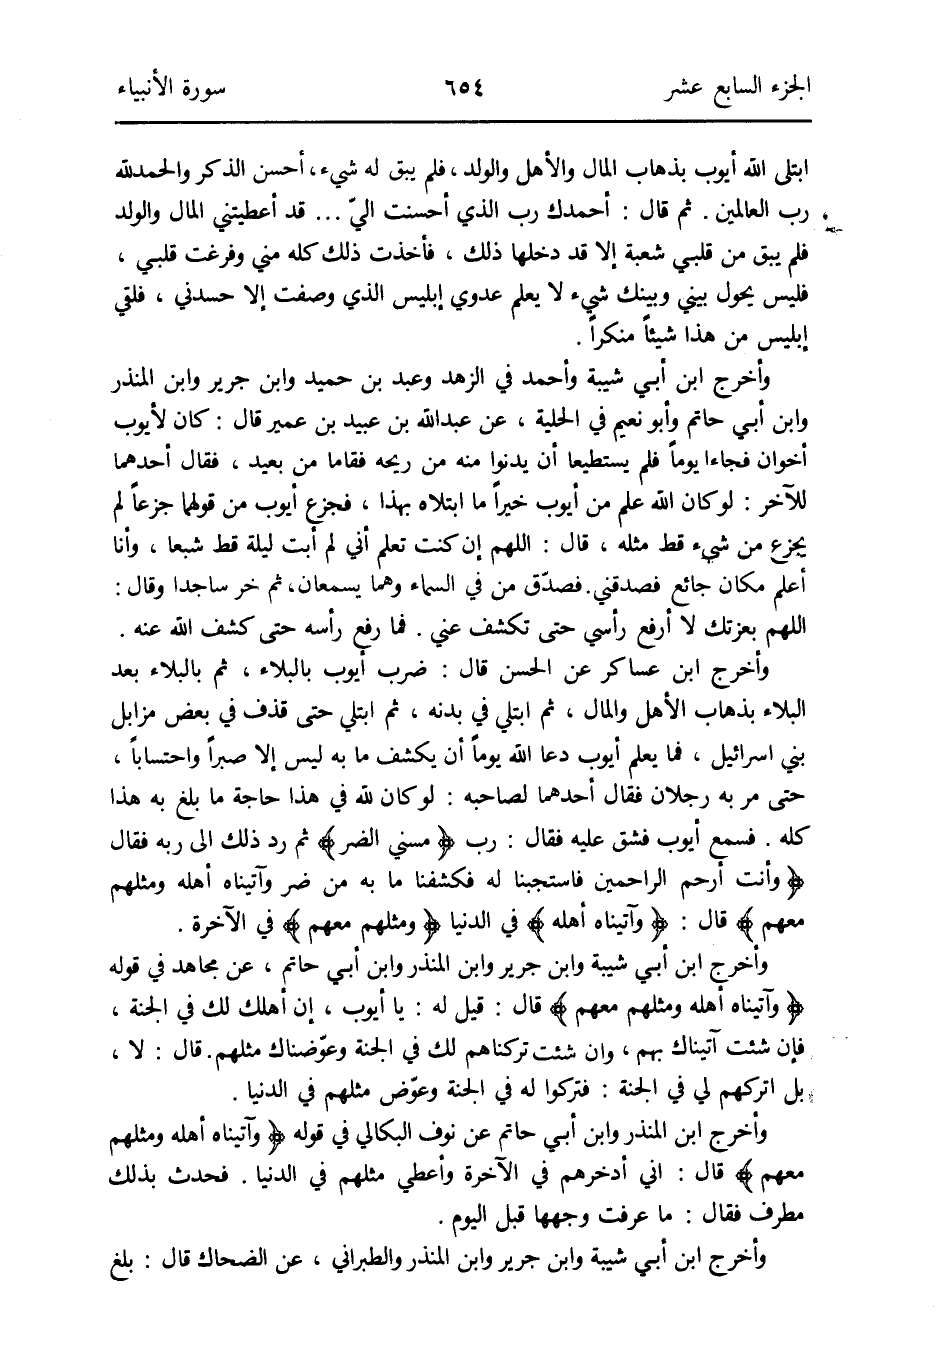 الجزء السابع عشر ٦٥٤ سورة الأنبياء
ابتلى الله أيوب بذهاب المال والأهل والولد ، فلم يبق له شيء ، أحسن الذكر والحمدلله
رب العالمين . ثم قال : أحمدك رب الذي أحسنت اليّ ... قد أعطيتني المال والولد
فلم يبق من قلبي شعبة إلا قد دخلها ذلك ، فأخذت ذلك كله مني وفرغت قلبي ،
فليس يحول بيني وبينك شيء لا يعلم عدوي إبليس الذي وصفت إلا حسدني ، فلقي
إبليس من هذا شيئاً منكراً .
وأخرج ابن أبي شيبة وأحمد في الزهد وعبد بن حميد وابن جرير وابن المنذر
وابن أبي حاتم وأبو نعيم في الحلية ، عن عبدالله بن عبيد بن عمير قال : كان لأيوب
أخوان فجاءا يوماً فلم يستطيعا أن يدنوا منه من ريحه فقاما من بعيد ، فقال أحدهما
للآخر : لو كان الله علم من أيوب خيراً ما ابتلاه بهذا ، فجزع أيوب من قولهما جزعاً لم
يجزع من شيء قط مثله ، قال : اللهم إن كنت تعلم أني لم أبت ليلة قط شبعا ، وأنا
أعلم مكان جائع فصدقني . فصدّق من في السماء وهما يسمعان ، ثم خر ساجدا وقال :
اللهم بعزتك لا أرفع رأسي حتى تكشف عني . فما رفع رأسه حتى كشف الله عنه .
وأخرج ابن عساكر عن الحسن قال : ضرب أيوب بالبلاء ، ثم بالبلاء بعد
البلاء بذهاب الأهل والمال ، ثم ابتلي في بدنه ، ثم ابتلي حتى قذف في بعض مزابل
بني اسرائيل ، فما يعلم أيوب دعا الله يوماً أن يكشف ما به ليس إلا صبراً واحتساباً ،
حتى مر به رجلان فقال أحدهما لصاحبه : لو كان لله في هذا حاجة ما بلغ به هذا
كله . فسمع أيوب فشق عليه فقال : رب ﴿ مسني الضر ﴾ ثم رد ذلك الى ربه فقال
﴿ وأنت أرحم الراحمين فاستجبنا له فكشفنا ما به من ضر وآتيناه أهله ومثلهم
معهم ﴾ قال : ﴿ وآتيناه أهله ﴾ في الدنيا ﴿ ومثلهم معهم ﴾ في الآخرة .
وأخرج ابن أبي شيبة وابن جرير وابن المنذر وابن أبي حاتم ، عن مجاهد في قوله
﴿ وآتيناه أهله ومثلهم معهم ﴾ قال : قيل له : يا أيوب ، إن أهلك لك في الجنة ،
فإن شئت آتيناك بهم ، وان شئت تركناهم لك في الجنة وعوّضناك مثلهم . قال : لا ،
بل اتركهم لي في الجنة : فتركوا له في الجنة وعوّض مثلهم في الدنيا .
وأخرج ابن المنذر وابن أبي حاتم عن نوف البكالي في قوله ﴿ وآتيناه أهله ومثلهم
معهم ﴾ قال : اني أدخرهم في الآخرة وأعطي مثلهم في الدنيا . فحدث بذلك
مطرف فقال : ما عرفت وجهها قبل اليوم .
وأخرج ابن أبي شيبة وابن جرير وابن المنذر والطبراني ، عن الضحاك قال : بلغ